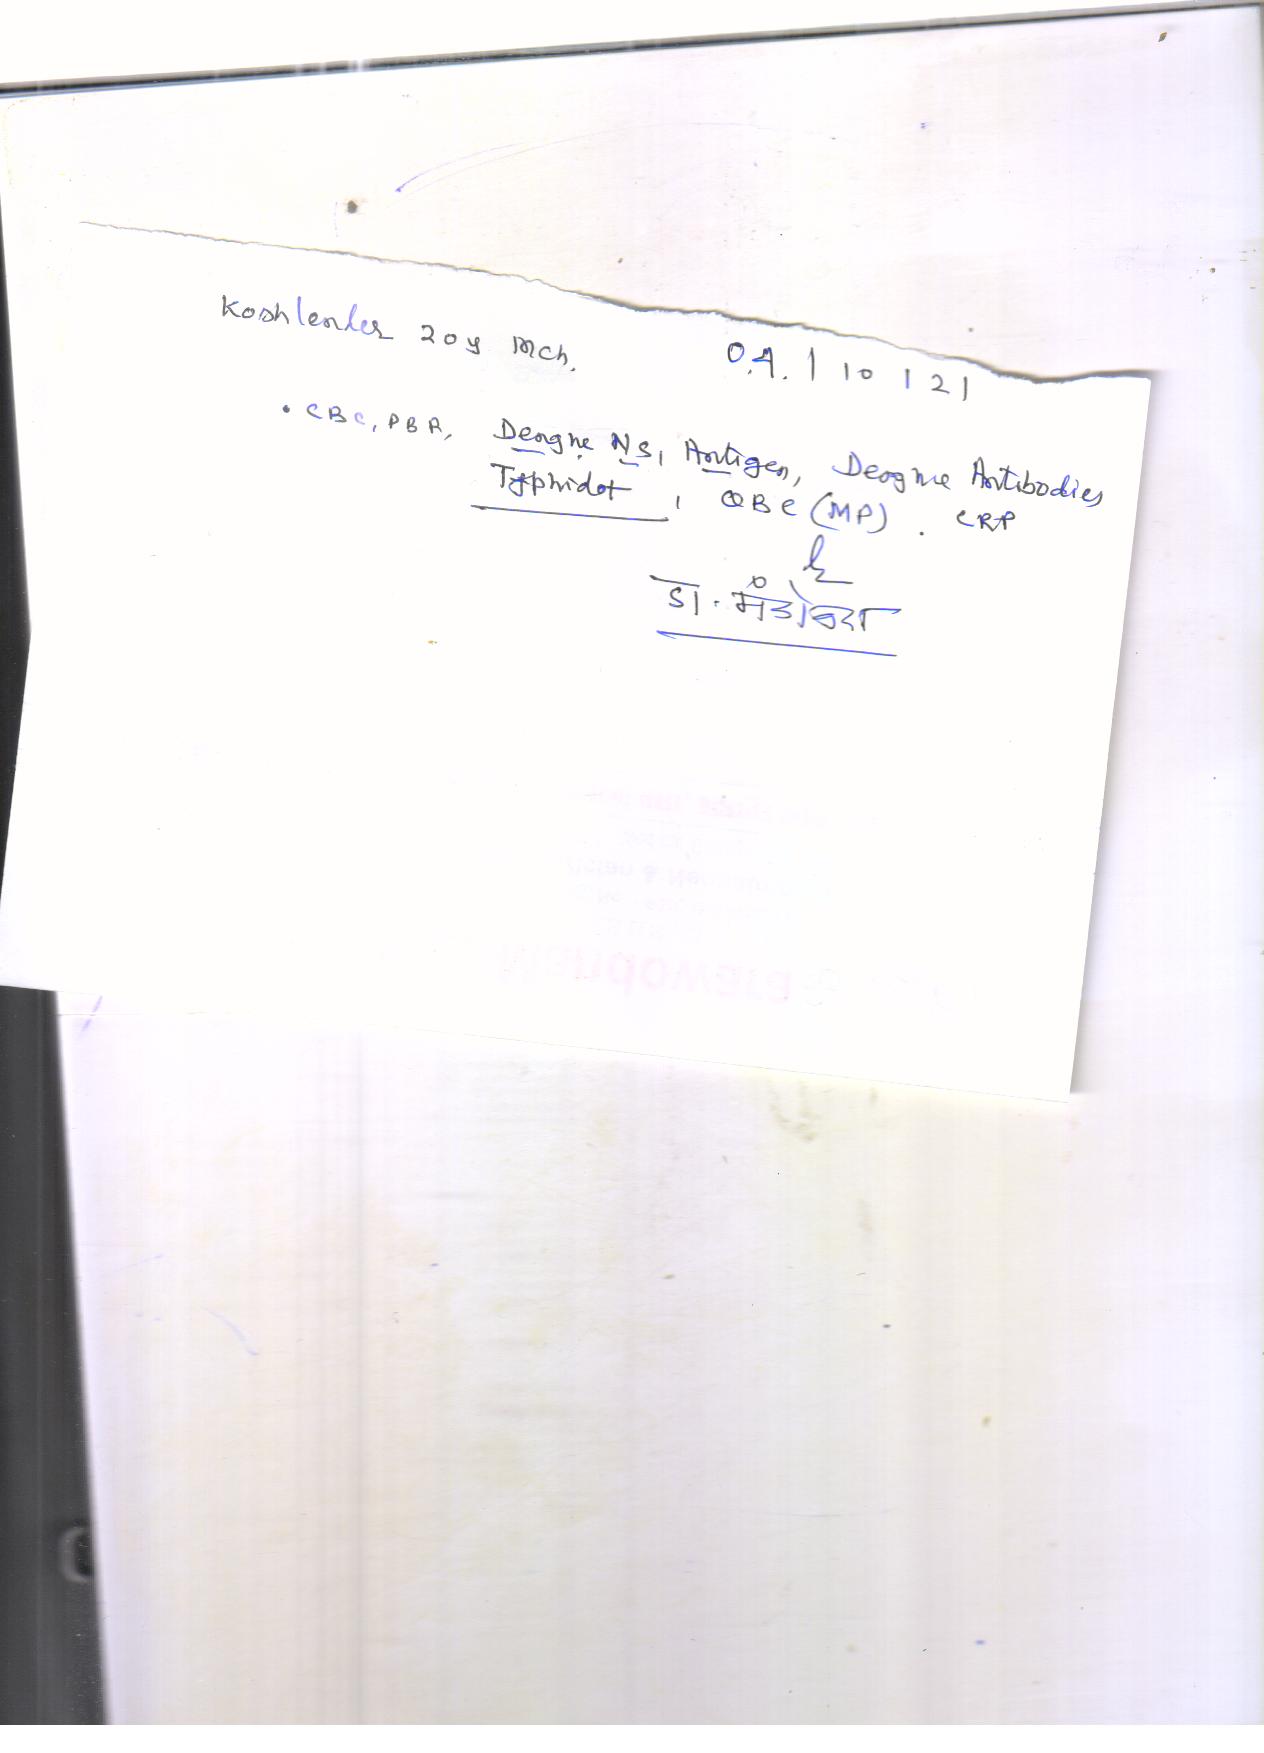 Koshlender 20y Mch. 04/10/21
• CBC, PBR, Dengue NS1 Antigen, Dengue Antibodies
Typhidot, QBC (MP). CRP
डा.
Mandowara